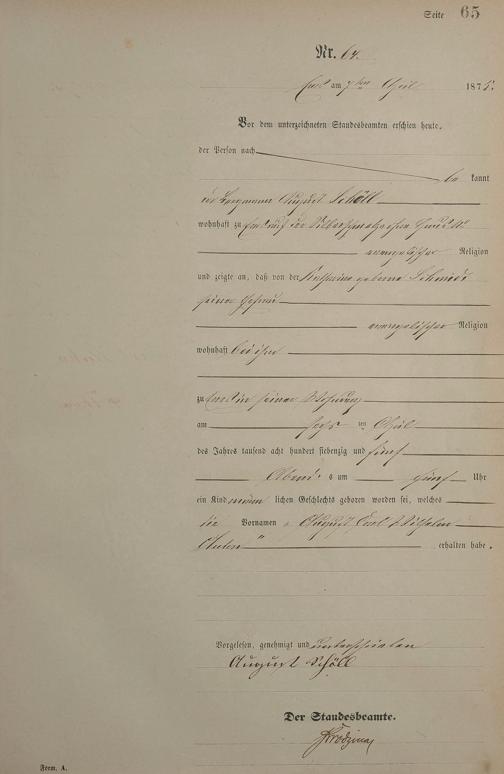 Seite 65
Nr. 64.
am 7ten April 1875.
Vor dem unterzeichneten Standesbeamten erschien heute,
der Person nach
be kannt
der Bergmann August Schöll
wohnhaft zu
evangelischer Religion
und zeigte an, daß von der Katharina geborne Schmidt
seiner Ehefrau
evangelischer Religion
wohnhaft bei ihm
zu in seiner Wohnung
am sechs ten April
des Jahres tausend acht hundert siebenzig und fünf
Abend s um fünf Uhr
ein Kind männ lichen Geschlechts geboren worden sei, welches
die Vornamen August Carl Wilhelm
Anton"
erhalten habe.
Vorgelesen, genehmigt und unterschrieben
August Schöll
Der Standesbeamte.
Form. A.